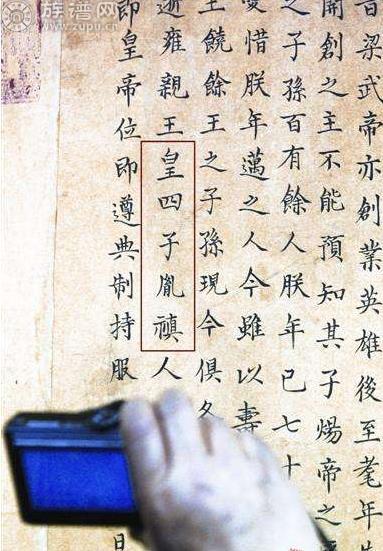 族谱网
www.zupu.cn
昔梁武帝亦創業英雄後至耄年
開創之主不能預知其子煬帝之
之子孫百有餘人朕年已七十
愛惜朕年邁之人今雖以壽
王饒餘王之子孫現今俱各
逝雍親王皇四子胤禛人
即皇帝位即遵典制持服